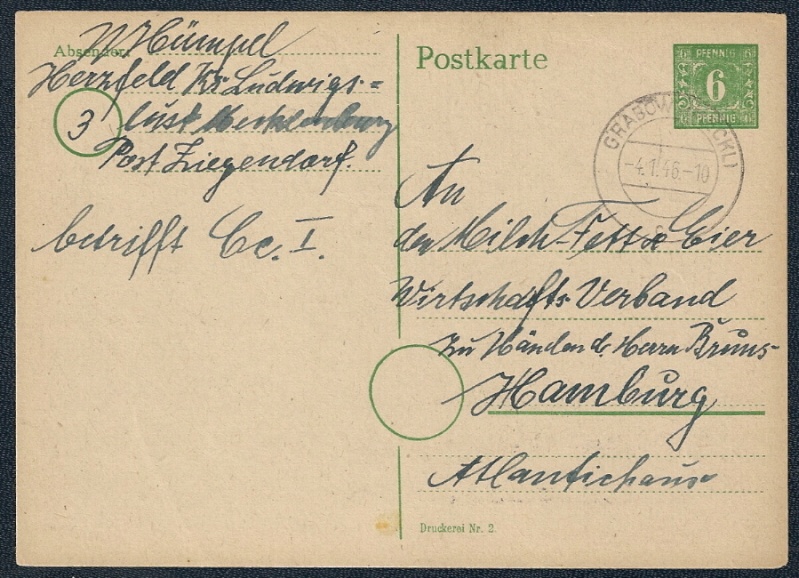 Absender:
W Hümpel
Herzfeld Kr. Ludwigs=
lust Mecklenburg
3
Post Ziegendorf.
betrifft Bc. I.
Postkarte
PFENNIG
6
PFENNIG
GRABOW (MECKL)
-4.1.46.-10
An
den Milch-Fett & Eier
Wirtschafts-Verband
zu Händen d. Herrn Bruns-
Hamburg
Atlantichaus
Druckerei Nr. 2